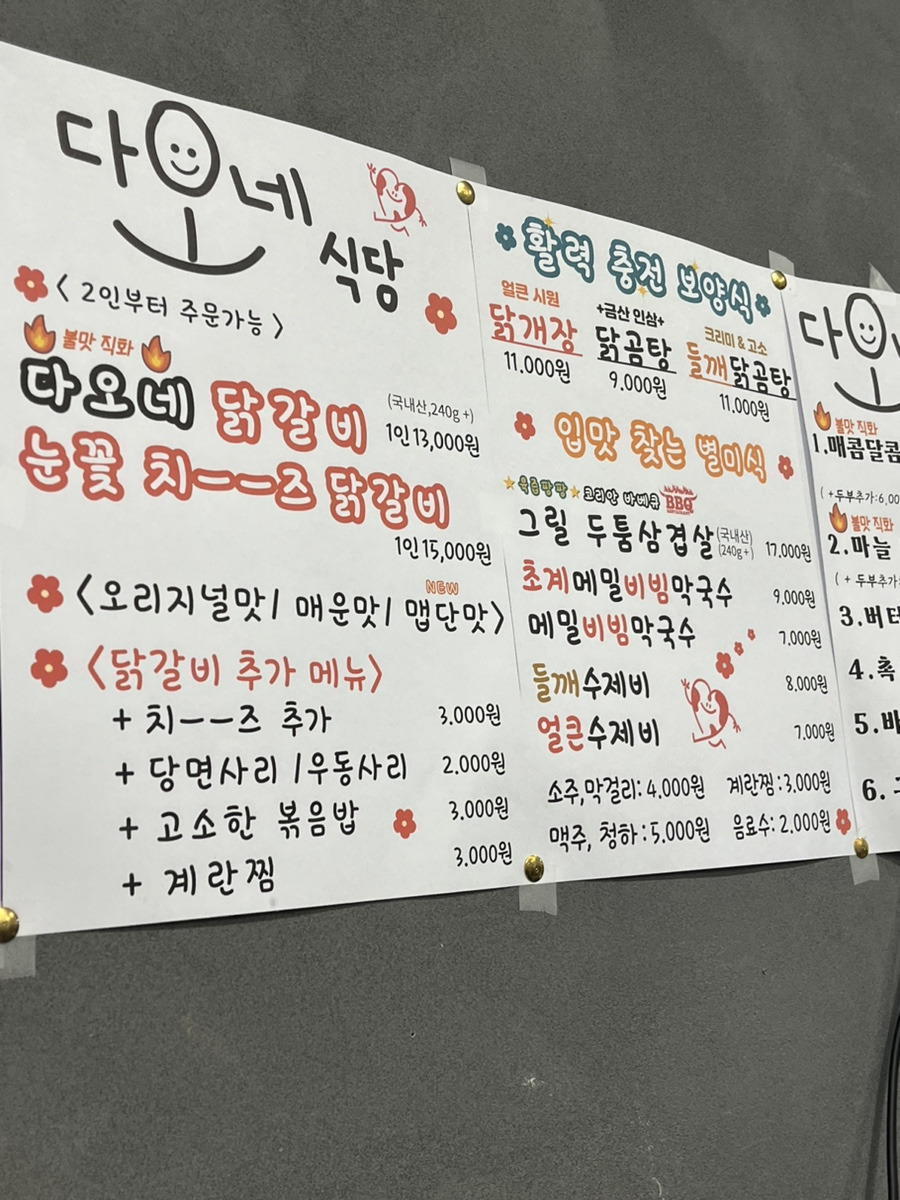 다오네
식당
< 2인부터 주문가능 >
불맛 직화
다오네 닭갈비 (국내산,240g+)
1인 13,000원
눈꽃 치ーー즈 닭갈비
1인 15,000원
NEW
<오리지널맛/ 매운맛/ 맵단맛>
<닭갈비 추가 메뉴>
+ 치ーー즈 추가 3.000원
+ 당면사리 /우동사리 2.000원
+ 고소한 볶음밥 3,000원
+ 계란찜 3.000원
활력 충전 보양식
얼큰 시원
닭개장
11.000원
+금산 인삼+
닭곰탕
9.000원
크리미 & 고소
들깨닭곰탕
11.000원
입맛 찾는 별미식
육즙팡팡 코리안 바베큐 BBQ
그릴 두툼삼겹살 (국내산) (240g+) 17.000원
초계메밀비빔막국수 9.000원
메밀비빔막국수 7.000원
들깨수제비 8.000원
얼큰수제비 7.000원
소주,막걸리: 4.000원 계란찜:3.000원
맥주, 청하:5.000원 음료수: 2.000원
다오
불맛 직화
1.매콤달콤
(+두부추가:6,00
불맛 직화
2.마늘
( + 두부추가:
3.버터
4.촉
5.바
6.